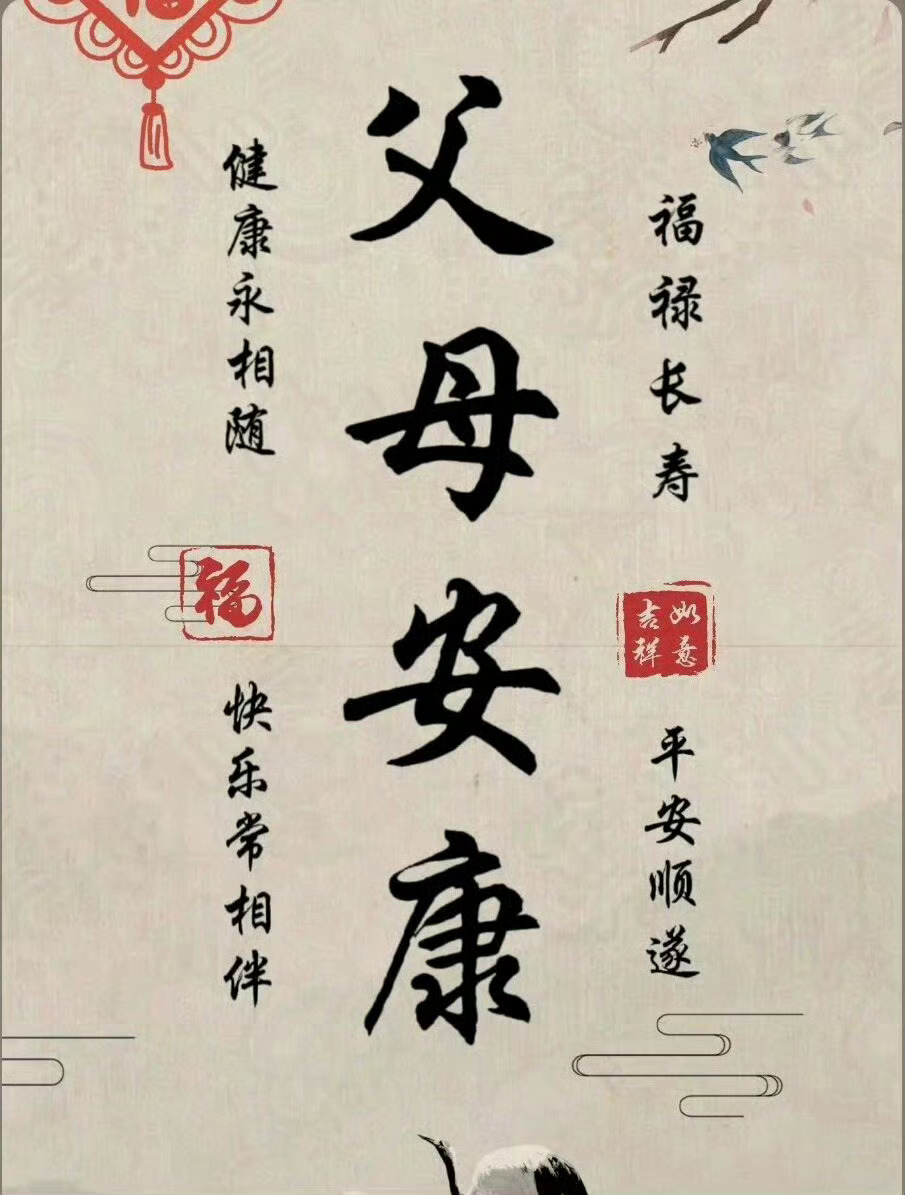 福禄长寿
平安顺遂
如意
吉祥
父母安康
健康永相随
福
快乐常相伴
福